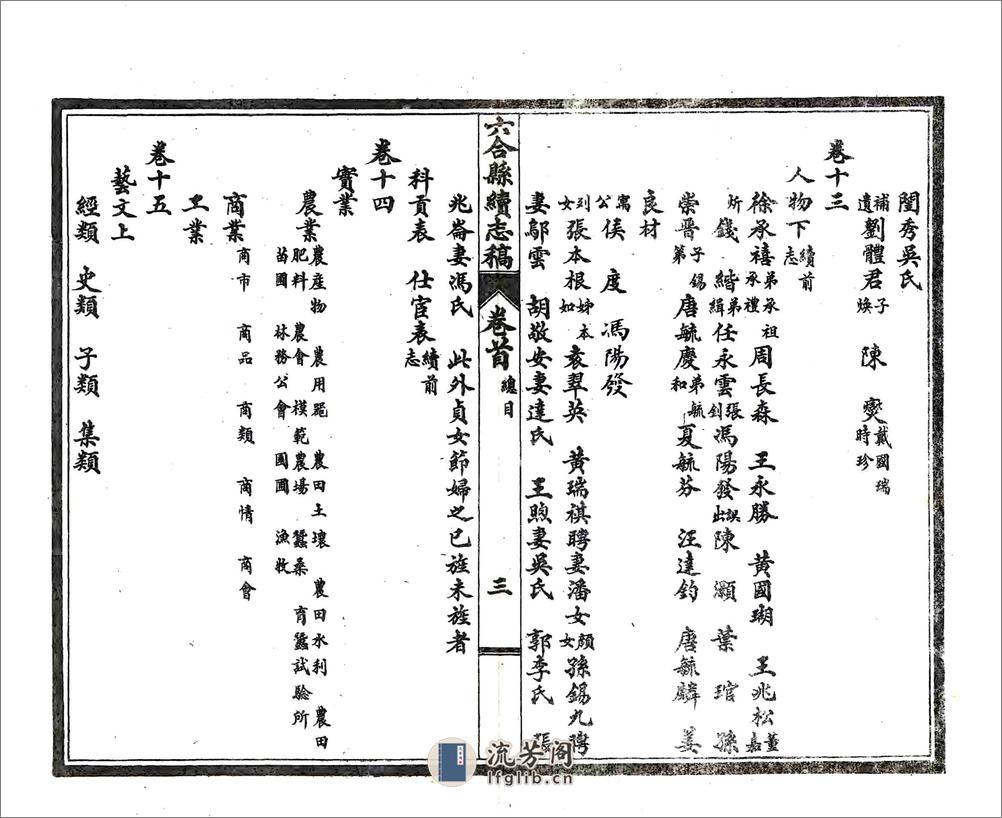 閨秀吳氏
補遺劉體君子煥 陳 燮戴國瑞時珍
卷十三
人物下續前志
徐承禧弟承祖承禮 周長森 王永勝 黃國瑚 王兆松董嘉
炘 錢 錯弟緝 任永雲張釗 馮陽發誤出 陳 灝 葉 琯 孫
崇晋子錫弟 唐毓慶弟毓和 夏毓芬 汪達鈞 唐毓麟 姜
良材
寓公侯 度 馮陽發
列女張本根姊本如 袁翠英 黃瑞祺聘妻潘女顏女 孫錫九聘
妻鄔雲 胡敬安妻達氏 王煦妻吳氏 郭李氏 張
六合縣續志稿 卷首 總目 三
兆崙妻馮氏 此外貞女節婦之已旌未旌者
科貢表 仕宦表續前志
卷十四
實業
農業農産物 農用器 農田土壤 農田水利 農田
肥料 農會 模範農場 蠶桑 育蠶試驗所
苗圃 林務公會 園圃 漁牧
商業商市 商品 商類 商情 商會
工業
卷十五
藝文上
經類 史類 子類 集類
流芳阁
lfglib.cn